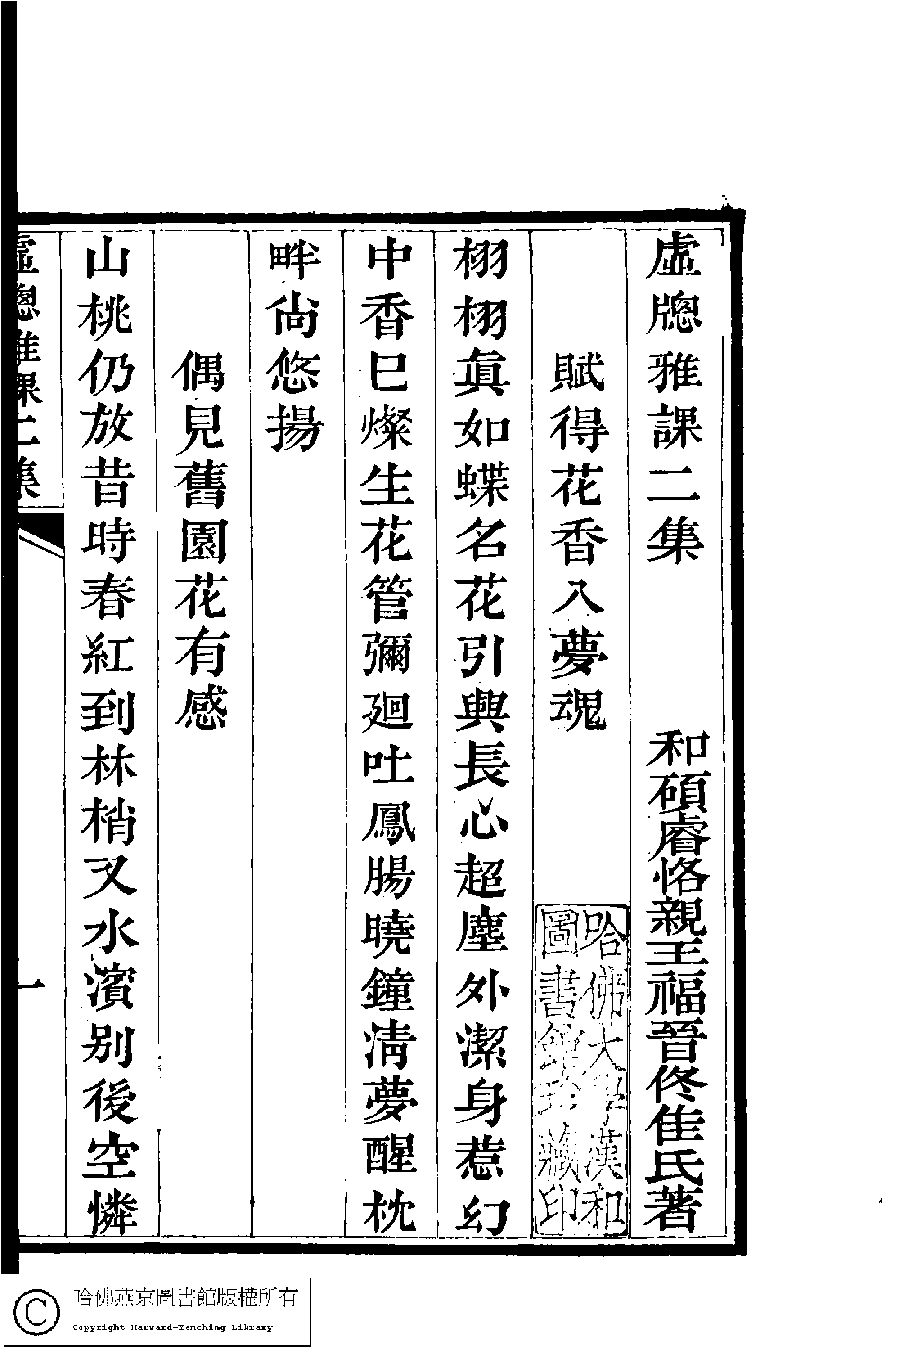 虛牕雅課二集 和碩睿恪親王福晉佟佳氏著
賦得花香入夢魂
栩栩眞如蝶名花引興長心超塵外潔身惹幻
中香巳燦生花管彌廻吐鳳腸曉鐘淸夢醒枕
畔尙悠揚
偶見舊園花有感
山桃仍放昔時春紅到林梢又水濱别後空憐
虛牕雅課二集
一
哈佛大學漢和
圖書館珍藏印
哈佛燕京圖書館版權所有
Copyright Harvard-Yenching Library